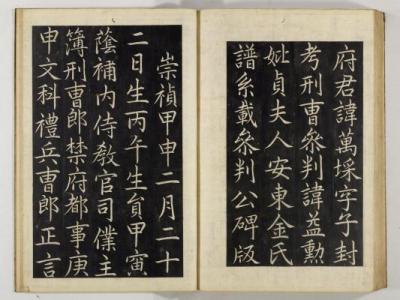 府君諱萬埰字子封
考刑曹叅判諱益勳
妣貞夫人安東金氏
譜系載叅判公碑版
崇禎甲申二月二十
二日生丙午生員甲寅
蔭補內侍敎官司僕主
簿刑曹郎禁府都事庚
申文科禮兵曹郎正言